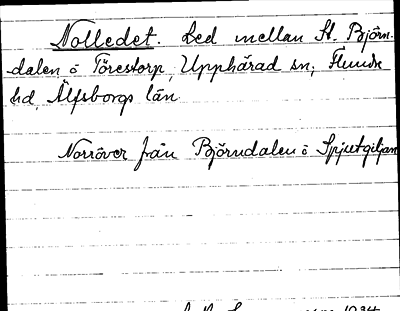 Nolledet. Led mellan St. Björn-
dalen o Törestorp, Upphärad sn, Flundre
hd, Älfsborgs län
Norröver från Björndalen o Spjutgiljan
1934